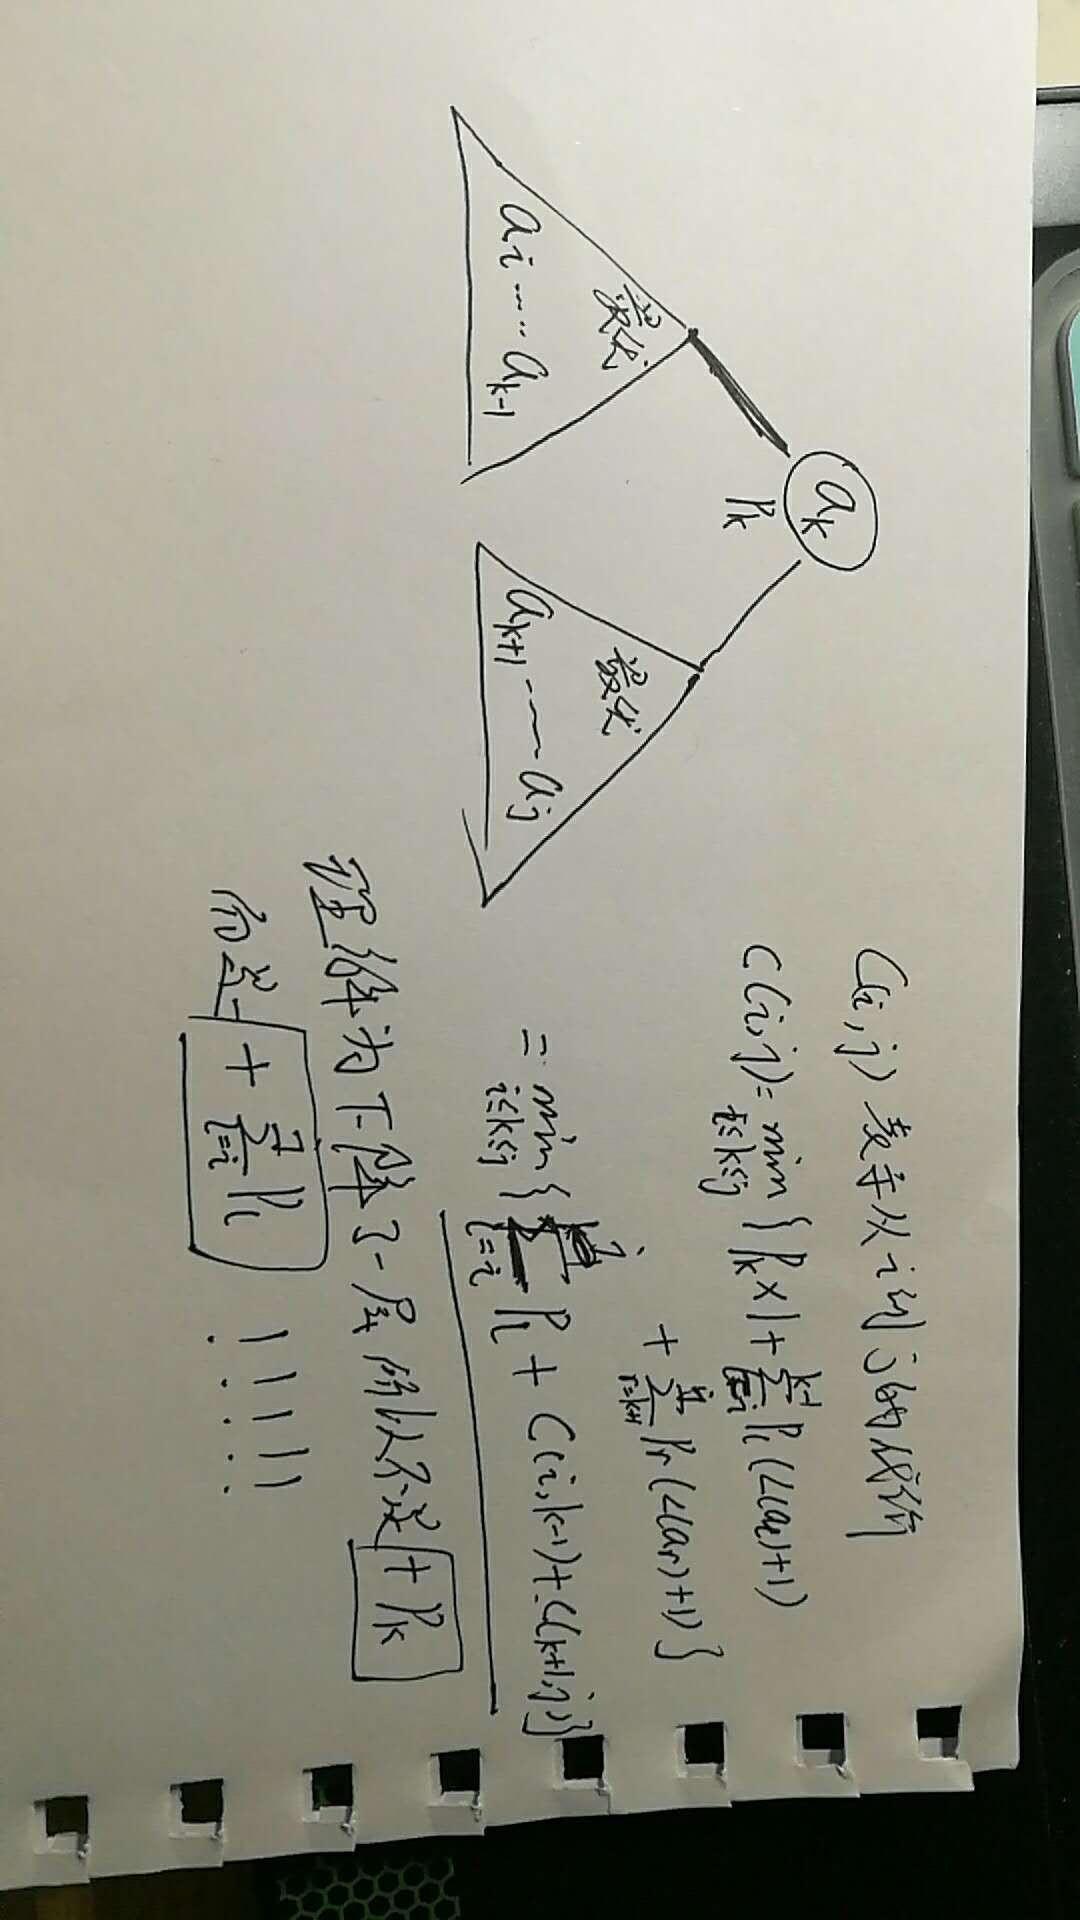 a_k
P_k
最优
a_i ····· a_{k-1}
最优
a_{k+1} ---- a_j
C(i,j) 表示从i到j的代价
C(i,j) = min_{i≤k≤j} { P_k×1 + \sum_{l=i}^{k-1} P_l (L(a_l)+1)
+ \sum_{r=k+1}^{j} P_r (L(a_r)+1) }
= min_{i≤k≤j} { \sum_{l=i}^{j} P_l + C(i,k-1) + C(k+1,j) }
理解为下降了一层 所以不是 +P_k
而是 + \sum_{l=i}^{j} P_l !!!!!